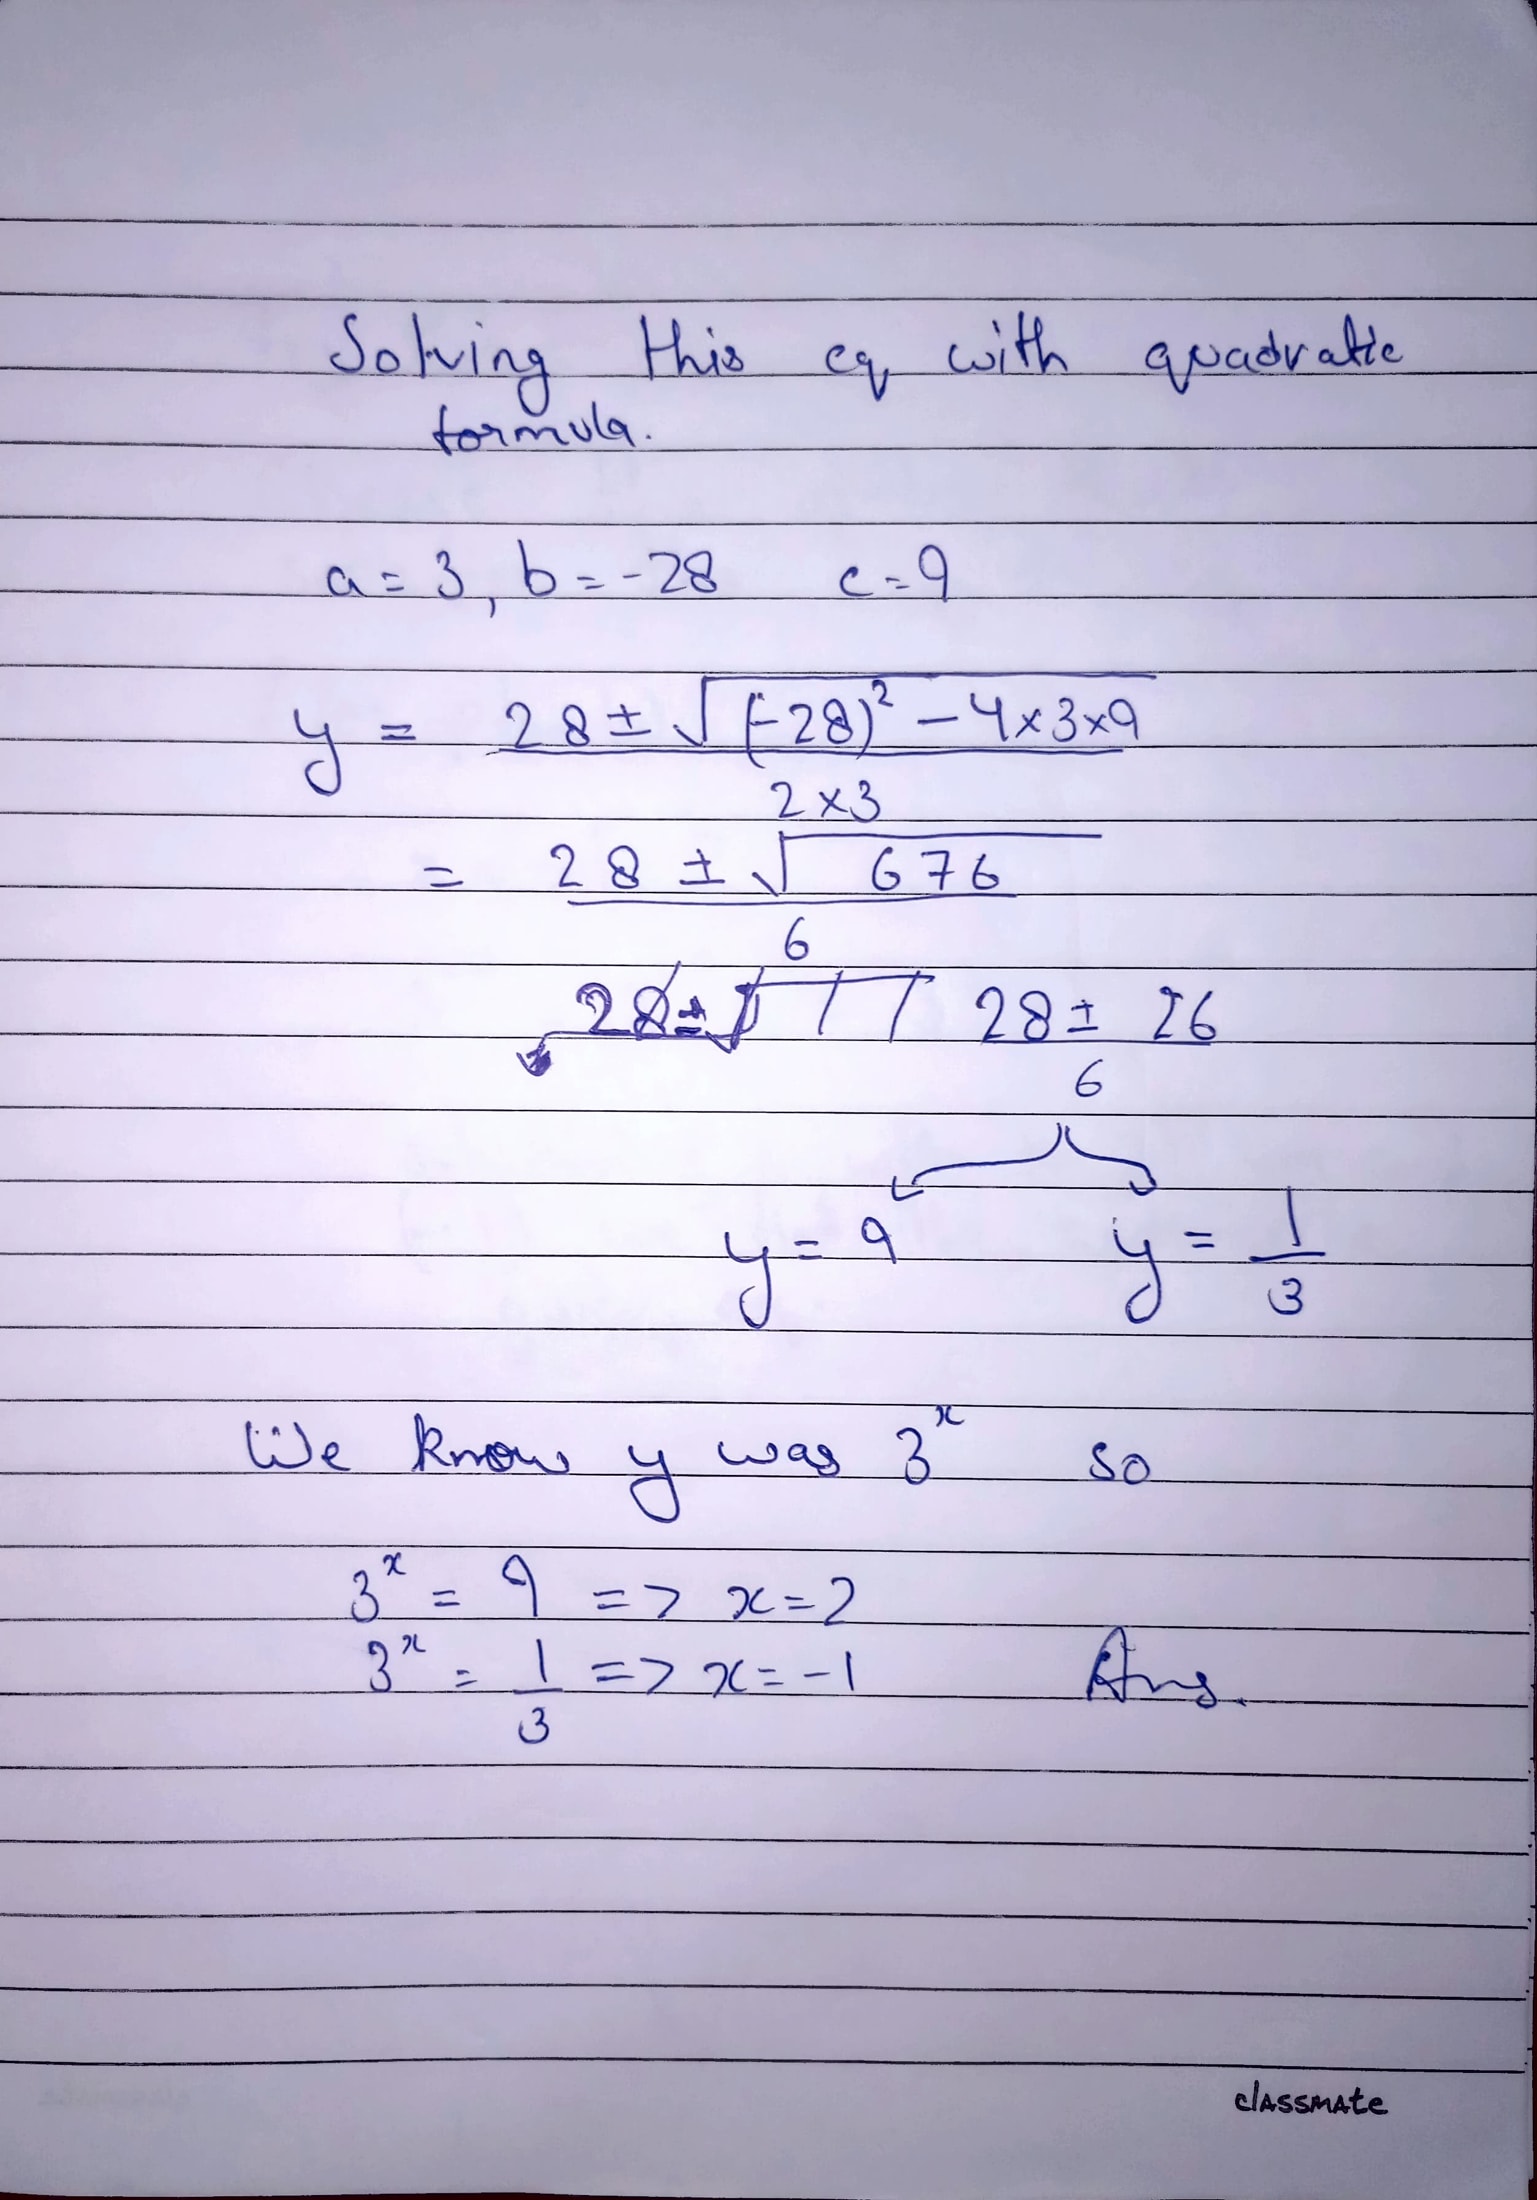 Solving this eq with quadratic
formula.
a = 3, b = -28 c = 9
y = 28 ± √(-28)² - 4×3×9
2×3
= 28 ± √676
6
28 ± √ 28 ± 26
6
y = 9 y = 1/3
We know y was 3ˣ so
3ˣ = 9 => x = 2
3ˣ = 1/3 => x = -1 Ans.
classmate